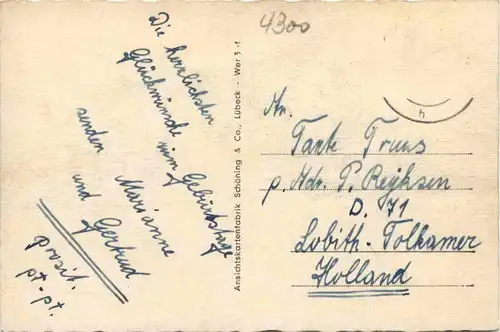 4300
Die herzlichsten
Glückwünsche zum Geburtstag
senden Marianne
und Gertrud.
prosit.
pt.-pt.
Ansichtskartenfabrik Schöning & Co., Lübeck - Wer 3 -f
An.
Tante Truus
p. Adr. P. Reijksen
D. 71
Lobith-Tolkamer
Holland